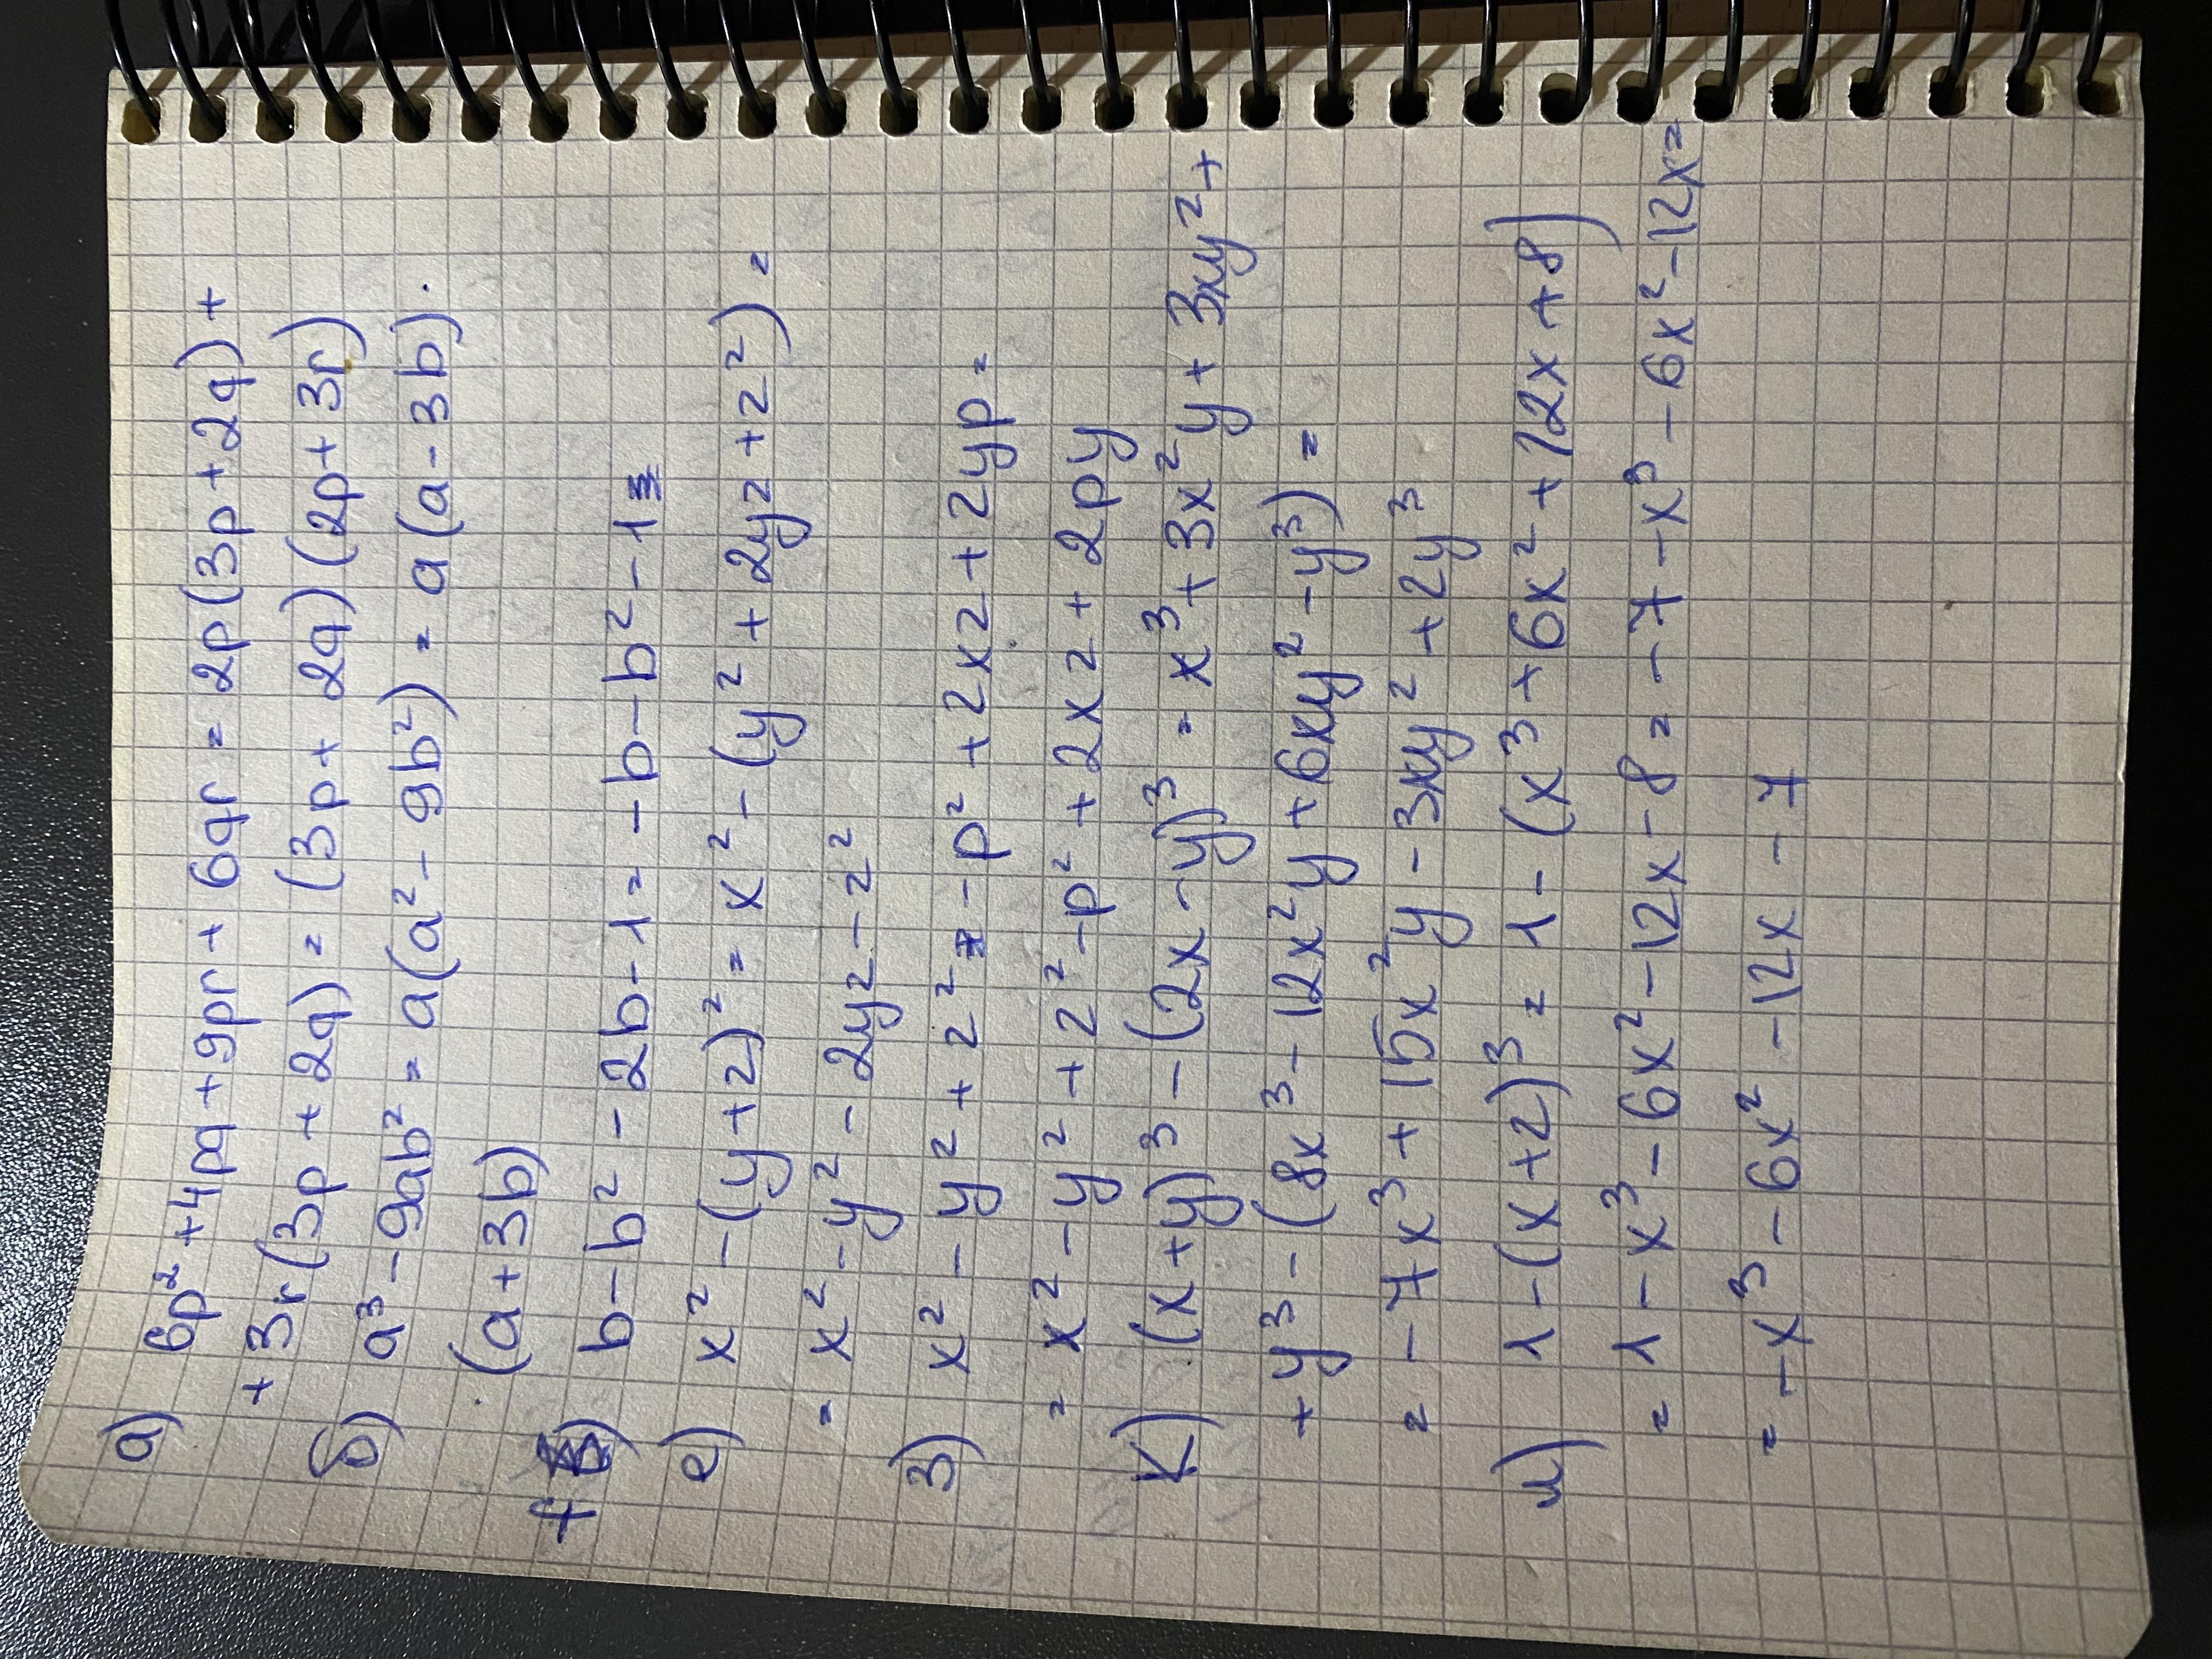 а) 6p² + 4pq + 9pr + 6qr = 2p(3p + 2q) +
+ 3r(3p + 2q) = (3p + 2q)(2p + 3r)
б) a³ - 9ab² = a(a² - 9b²) = a(a - 3b) ·
· (a + 3b)
f) b - b² - 2b - 1 = - b - b² - 1
е) x² - (y + z)² = x² - (y² + 2yz + z²) =
= x² - y² - 2yz - z²
з) x² - y² + z² - p² + 2xz + 2yp =
= x² - y² + z² - p² + 2xz + 2py
к) (x + y)³ - (2x - y)³ = x³ + 3x²y + 3xy² +
+ y³ - (8x³ - 12x²y + 6xy² - y³) =
= - 7x³ + 15x²y - 3xy² + 2y³
и) 1 - (x + 2)³ = 1 - (x³ + 6x² + 12x + 8)
= 1 - x³ - 6x² - 12x - 8 = - 7 - x³ - 6x² - 12x =
= - x³ - 6x² - 12x - 7